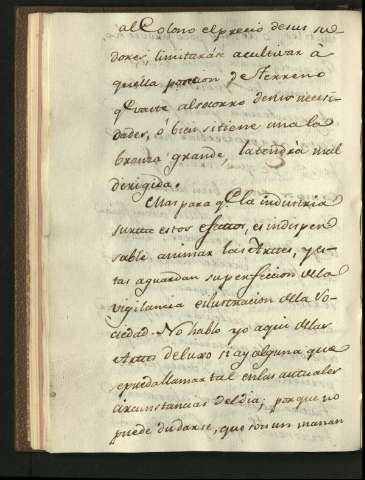 al Colono el precio de sus su-
dores, limitarán a cultivar à
quella porcion de Terreno
q. baste al socorro de sus necesi-
dades, ò bien si tiene una la
branza grande, la tendrà mal
dirigida.
Mas para q. la industria
surta estos efectos, es indispen
sable animar las Artes, y es-
tas aguardan su perfeccion de la
vigilancia e ilustracion de la So-
ciedad. No hablo yo aqui de las
Artes de luxo si ay alguna que
se pueda llamar tal en las actuales
circunstancias del dia; porque no
puede dudarse, que son un manan